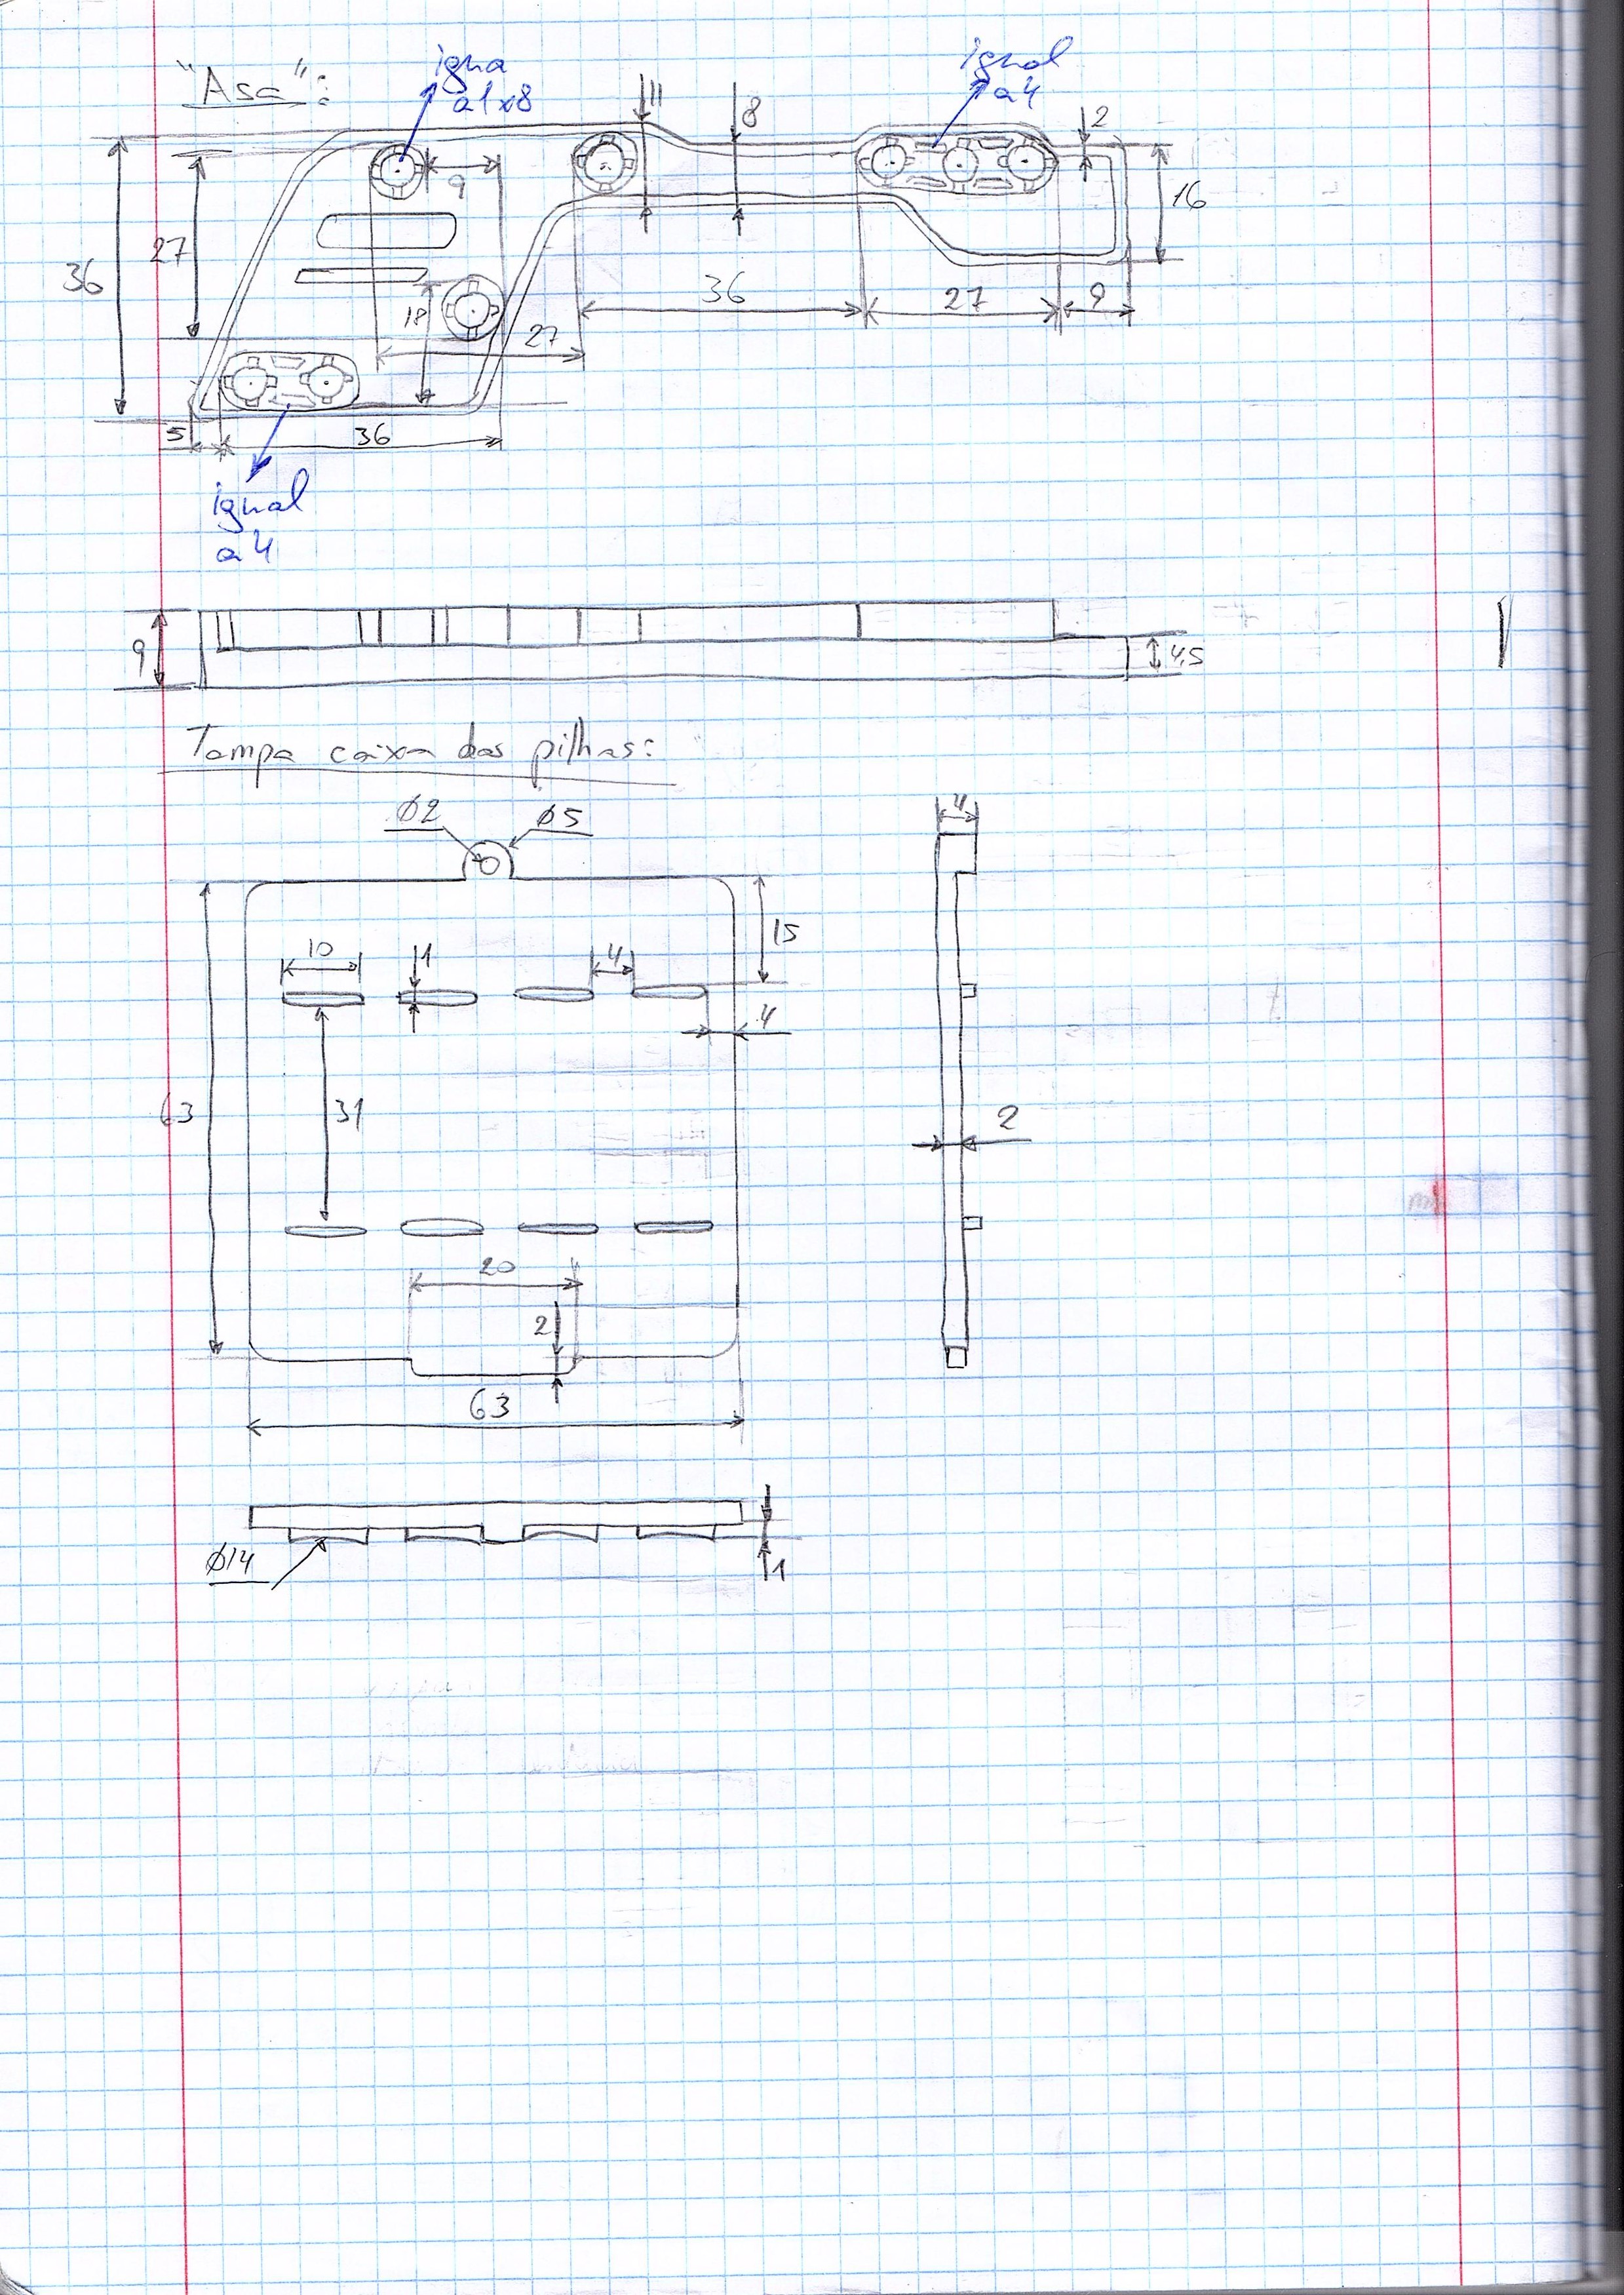 "Asa":
igua
a 1x8
igual
a 4
11
8
2
9
16
27
36
36
27
9
18
27
5
36
igual
a 4
9
4,5
Tampa caixa das pilhas:
Ø2
Ø5
4
15
10
1
4
4
63
31
2
20
2
63
Ø14
1